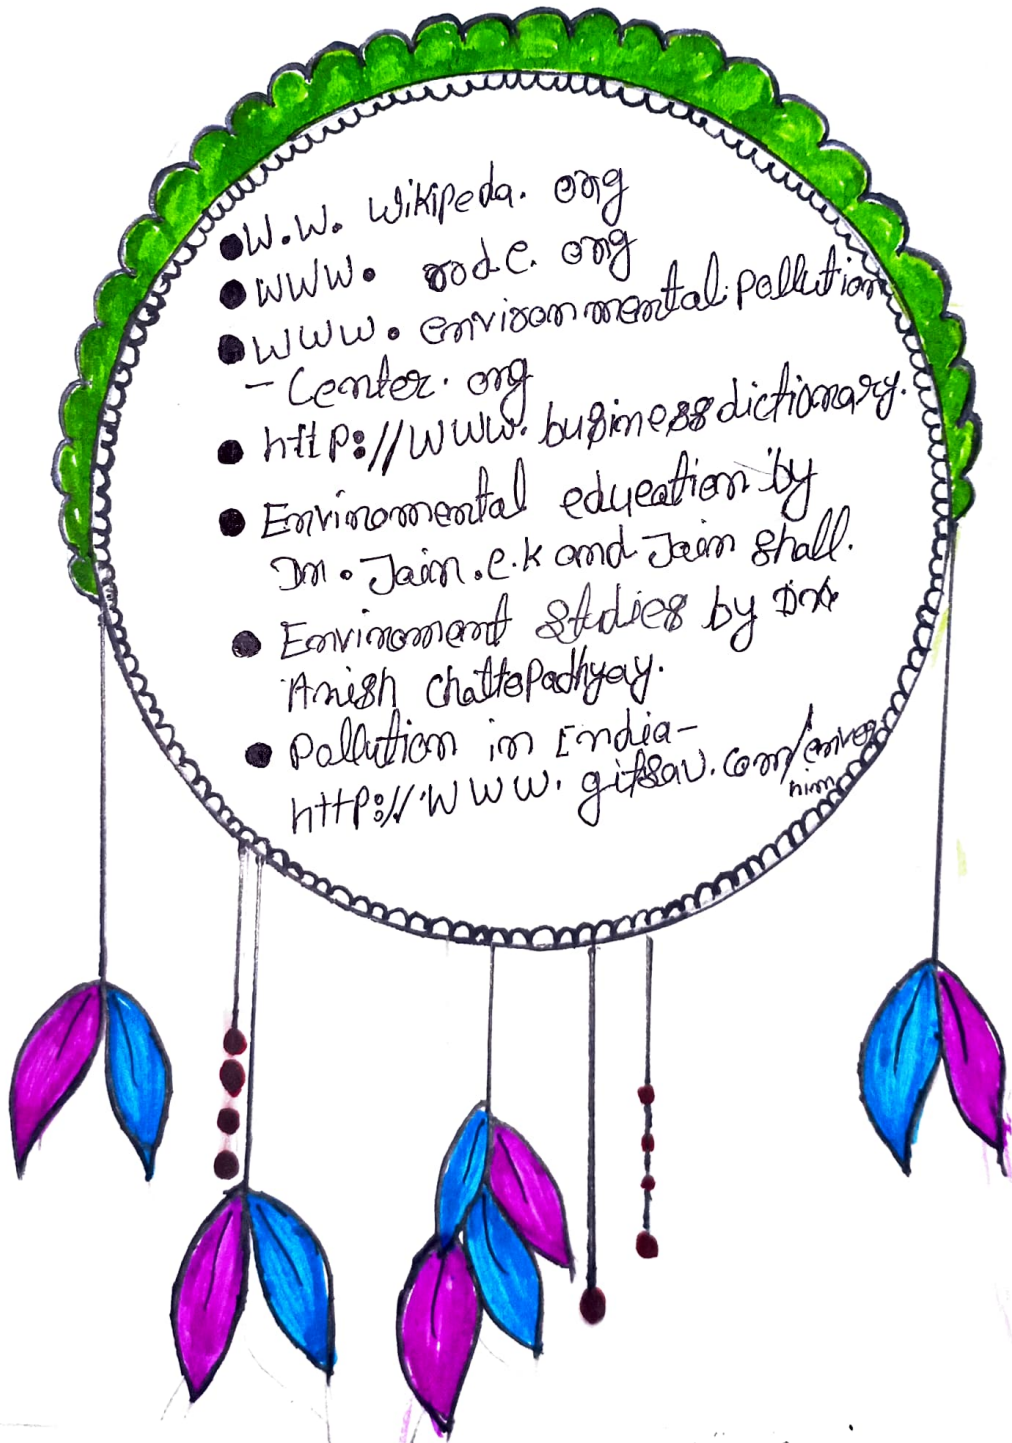 W.W. Wikipeda. org
WWW. rod.c. org
WWW. environmental.pollution
- Center. org
http://WWW. businessdictionary.
Envinomental education by
Dr. Jain.C.K and Jain Shall.
Enviroment Studies by Dr.
Anish Chattopadhyay.
Pollution in India-
http://WWW. gitsav.com/enviro
nim